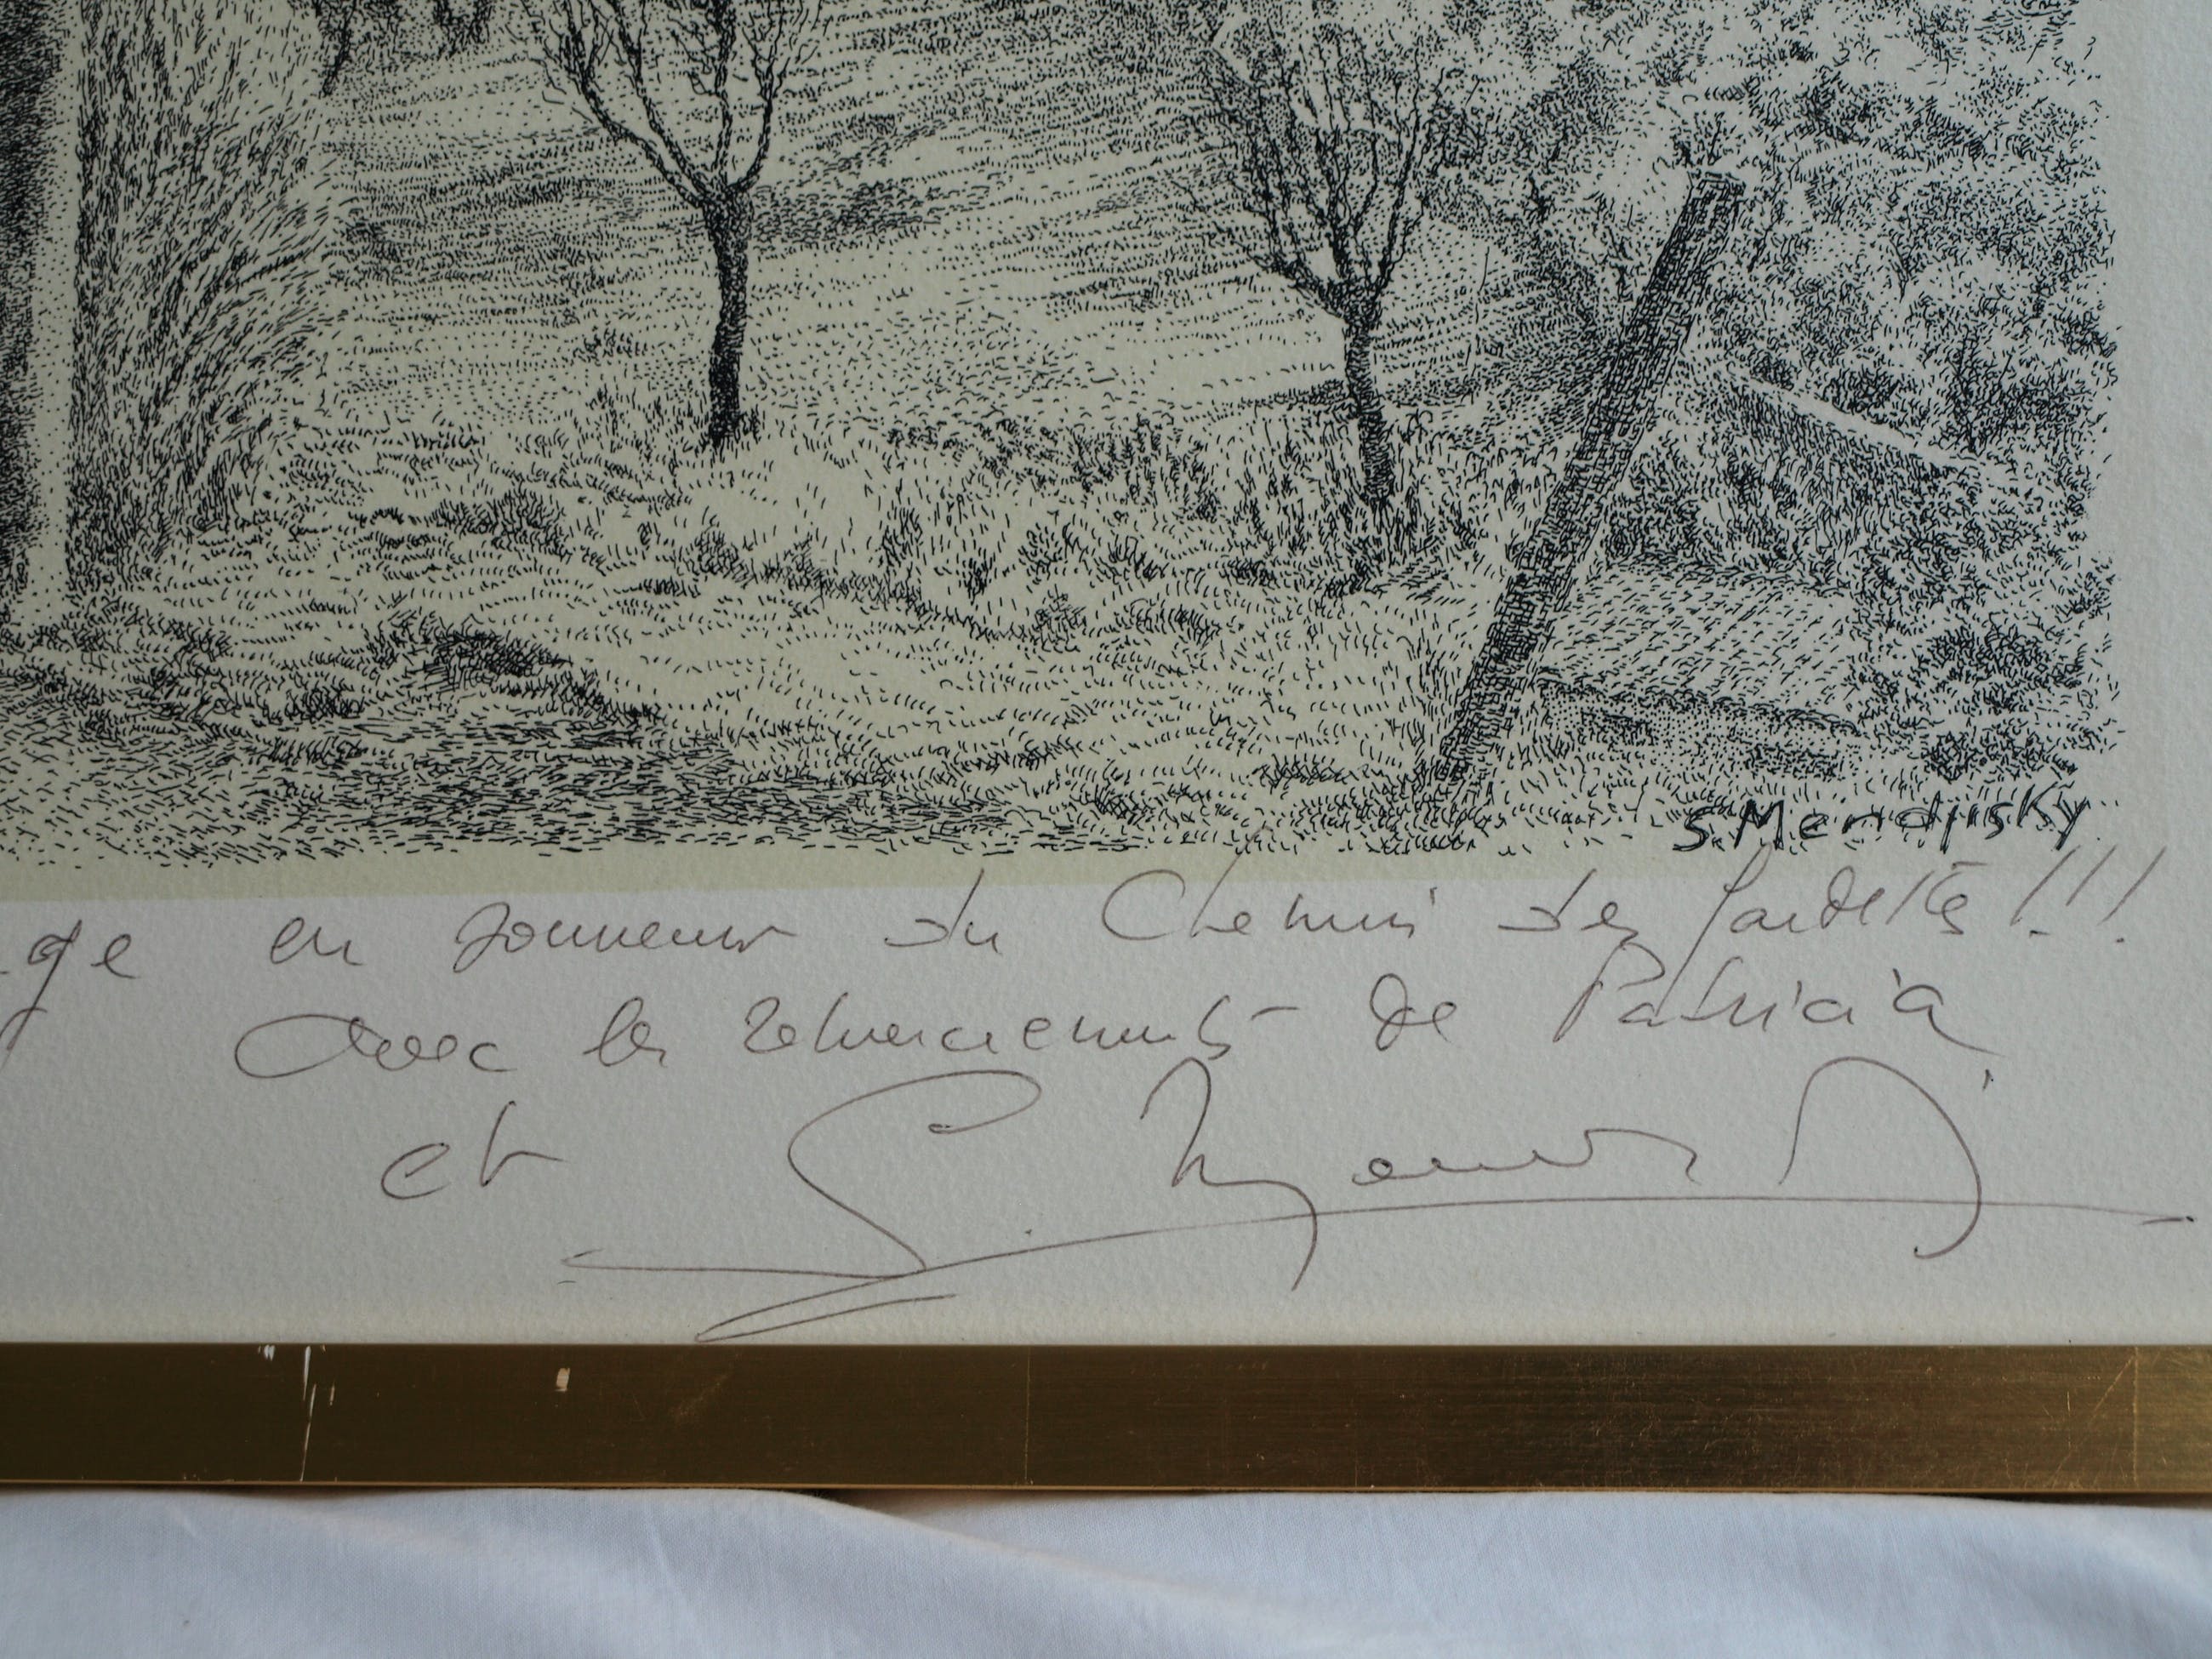 S. Mendjisky
en souvenir du Chemin des Gardettes !!!
avec les remerciements de Patricia
et